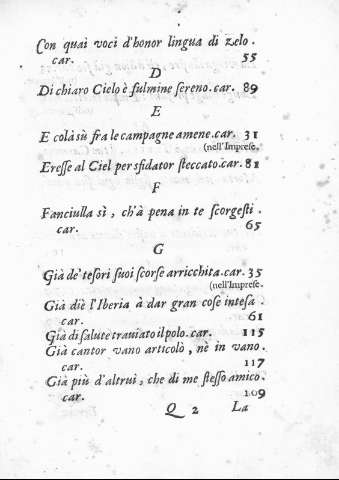 Con quai voci d'honor lingua di zelo.
car. 55
D
Di chiaro Cielo è fulmine sereno. car. 89
E
E colà sù fra le campagne amene. car. 31
(nell'Imprese.
Eresse al Ciel per sfidator steccato. car. 81
F
Fanciulla sì, ch'à pena in te scorgesti.
car. 65
G
Già de' tesori suoi scorse arricchita. car. 35
(nell'Imprese.
Già diè l'Iberia à dar gran cose intesa.
car. 61
Già di salute traviato il polo. car. 115
Già cantor vano articolò, nè in vano.
car. 117
Già più d'altrui, che di me stesso amico.
car. 109
Q 2 La